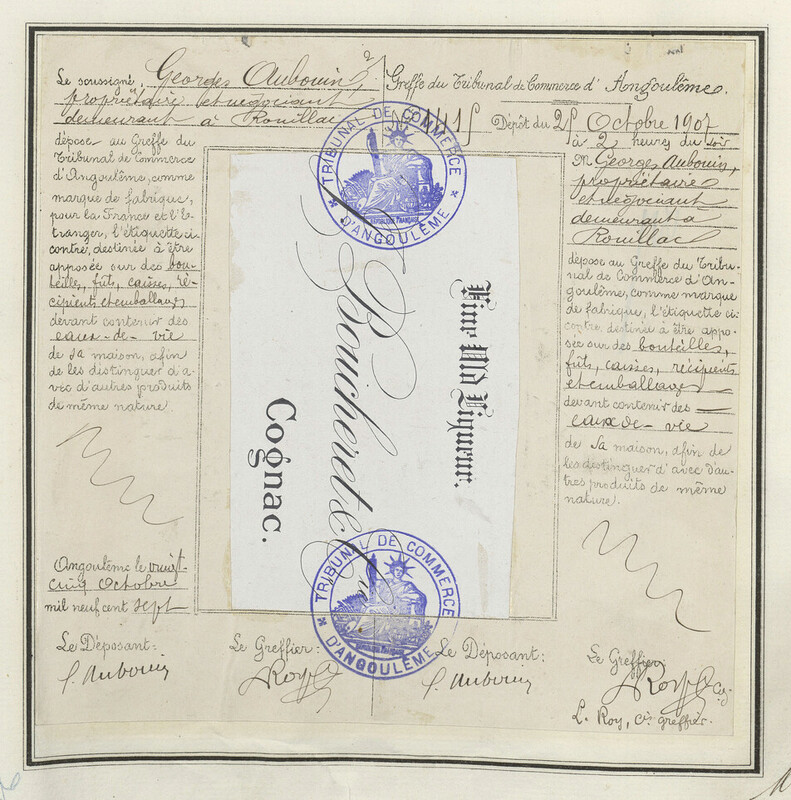 Le soussigné, Georges Aubouin,
propriétaire et négociant
demeurant à Rouillac
dépose au Greffe du
Tribunal de Commerce
d'Angoulême, comme
marque de fabrique,
pour la France et l'é-
tranger, l'étiquette ci-
contre, destinée à être
apposée sur des bou-
teilles, fûts, caisses, ré-
cipients et emballages
devant contenir des
eaux-de-vie
de sa maison, afin
de les distinguer d'a-
vec d'autres produits
de même nature.
Angoulême le vingt-
cinq Octobre
mil neuf cent sept
Le Déposant:
G. Aubouin
Le Greffier:
Roy
TRIBUNAL DE COMMERCE
D'ANGOULÊME
RÉPUBLIQUE FRANÇAISE
Fine Old Liqueur.
Boucheret & Cie
Cognac.
TRIBUNAL DE COMMERCE
D'ANGOULÊME
Greffe du Tribunal de Commerce d'Angoulême.
Dépôt du 25 Octobre 1907
à 2 heures du soir
M Georges Aubouin,
propriétaire
et négociant
demeurant à
Rouillac
dépose au Greffe du Tribu-
nal de Commerce d'An-
goulême, comme marque
de fabrique, l'étiquette ci-
contre destinée à être appo-
sée sur des bouteilles,
fûts, caisses, récipients
et emballages
devant contenir des
eaux-de-vie
de sa maison, afin de
les distinguer d'avec d'au-
tres produits de même
nature.
Le Déposant:
G. Aubouin
Le Greffier:
Roy
L. Roy, Cis greffier.